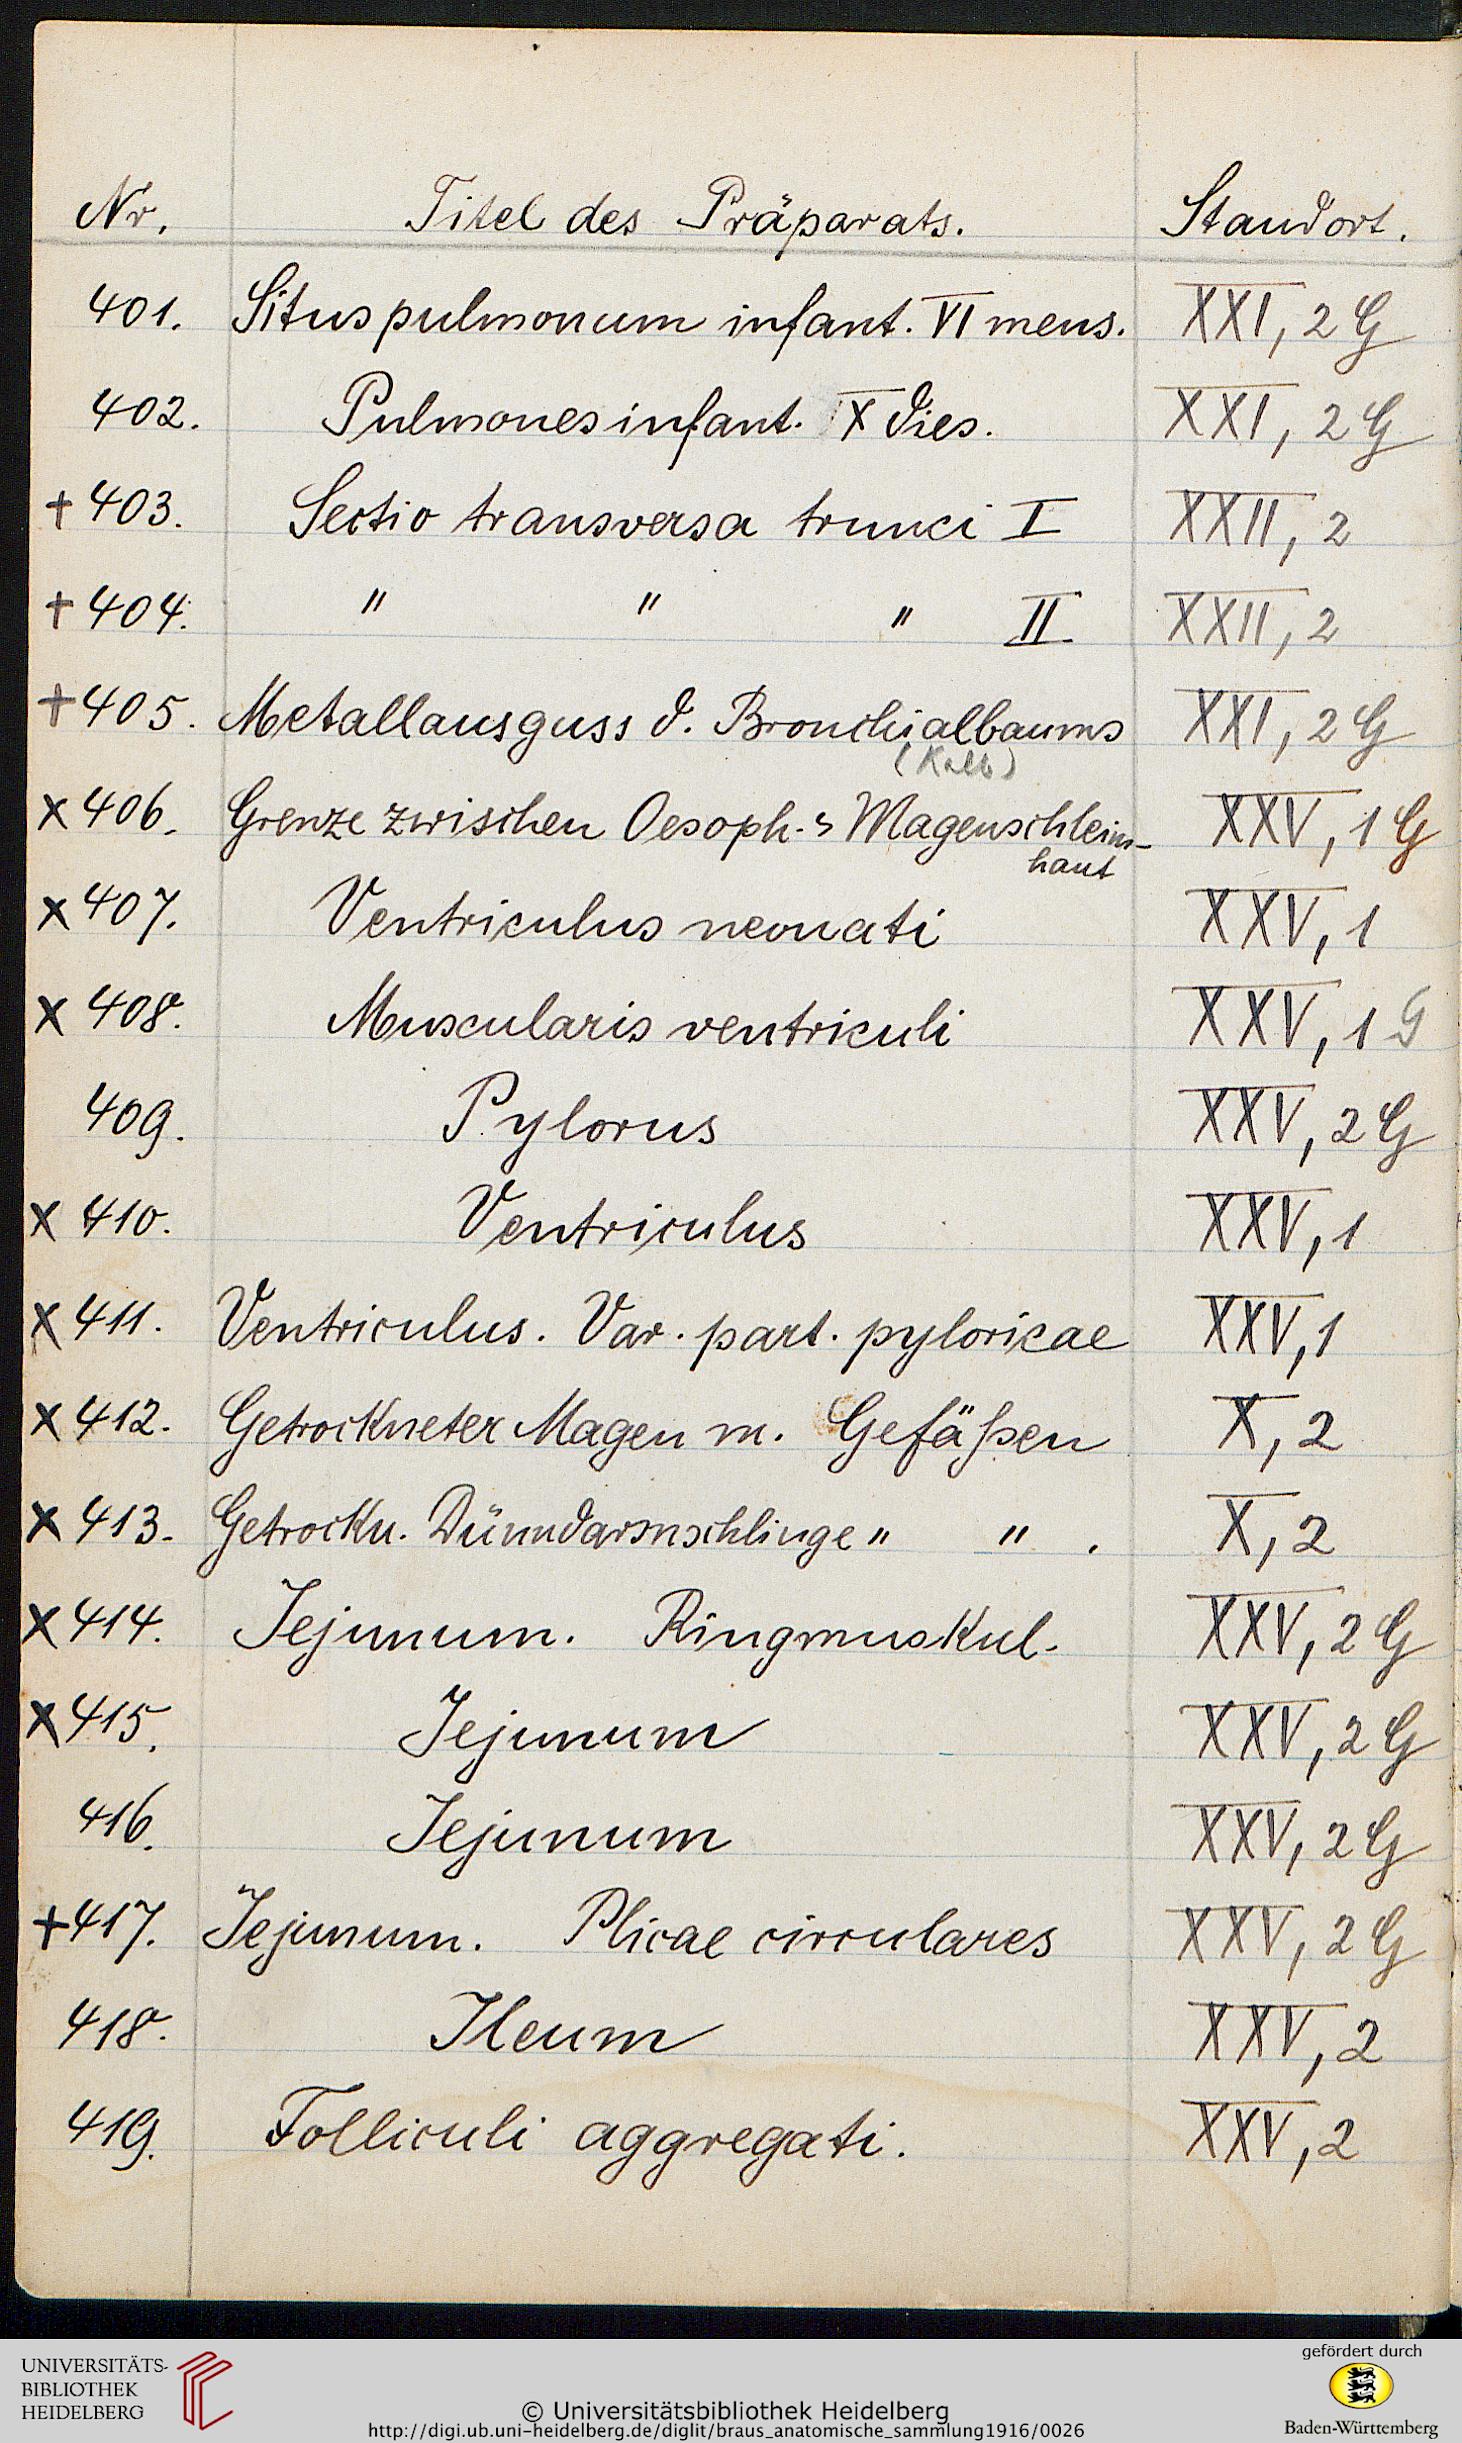 Nr. Titel des Präparats. Standort.
401. Situs pulmonum infant. VI mens. XXI, 2 G
402. Pulmones infant. IX dies. XXI, 2 G
+ 403. Sectio transversa trunci I XXII, 2
+ 404. " " " II XXII, 2
+ 405. Metallausguss d. Bronchialbaums XXI, 2 G
(Kalb)
x 406. Grenze zwischen Oesoph.- Magenschleim- XXV, 1 G
haut
x 407. Ventriculus neonati XXV, 1
x 408. Muscularis ventriculi XXV, 1 G
409. Pylorus XXV, 2 G
x 410. Ventriculus XXV, 1
x 411. Ventriculus. Var. part. pyloricae XXV, 1
x 412. Getrockneter Magen m. Gefäßen X, 2
x 413. Getrockn. Dünndarmschlinge " " . X, 2
x 414. Jejunum. Ringmuskul. XXV, 2 G
x 415. Jejunum XXV, 2 G
416. Jejunum XXV, 2 G
+ 417. Jejunum. Plicae circulares XXV, 2 G
418. Ileum XXV, 2
419. Folliculi aggregati. XXV, 2
UNIVERSITÄTS-
BIBLIOTHEK
HEIDELBERG
© Universitätsbibliothek Heidelberg
http://digi.ub.uni-heidelberg.de/diglit/braus_anatomische_sammlung1916/0026
gefördert durch
Baden-Württemberg